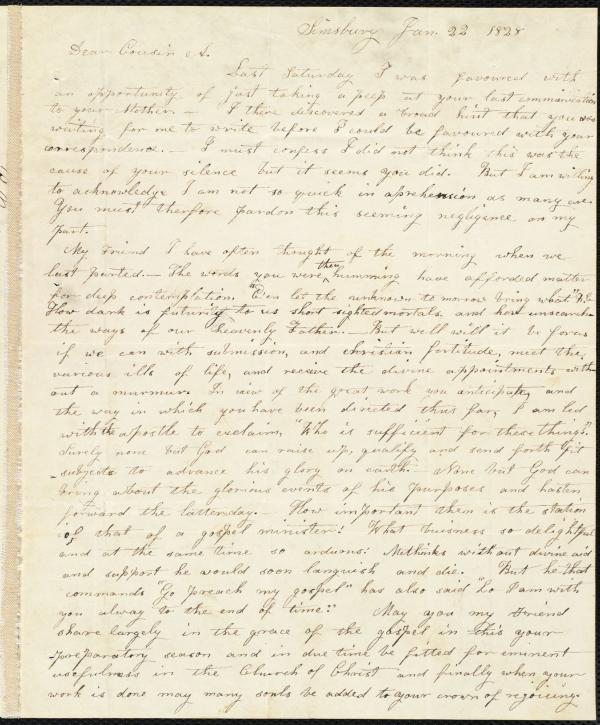 Simsbury Jan. 22 1828
Dear Cousin A.
Last Saturday I was favoured with
an opportunity of just taking a peep at your last communication
to your Mother. — I there discovered a broad hint that you was
waiting for me to write before I could be favoured with your
correspondence. — I must confess I did not think this was the
cause of your silence but it seems you did. But I am willing
to acknowledge I am not so quick in aprehension as many are.
You must therfore pardon this seeming negligence on my
part.
My Friend I have often thought of the morning when we
last parted. — The words you were then humming have afforded matter
for deep contemplation. "E'en let the unknown to morrow bring what it
How dark is futurity to us short sighted mortals, and how unsearch
the ways of our heavenly Father. — But well will it be for us
if we can with submission, and christian fortitude, meet the
various ills of life, and receive the divine appointments with
out a murmur. In view of the great work you anticipate, and
the way in which you have been directed thus far, I am led
with the apostle to exclaim, "Who is sufficient for these things."
Surely none but God can raise up, qualify and send forth fit
subjects to advance his glory on earth. None but God can
bring about the glorious events of his purposes and hasten
forward the latter day. — How important then is the station
of that of a gospel minister! What buisness so delightful
and at the same time so arduous! Methinks without divine aid
and support he would soon languish and die. But he that
commands "Go preach my gospel" has also said "Lo I am with
you alway to the end of time." May you my Friend
share largely in the grace of the gospel in this your
preparatory season and in due time be fitted for eminent
usefulness in the Church of Christ and finally when your
work is done may many souls be added to your crown of rejoicing.